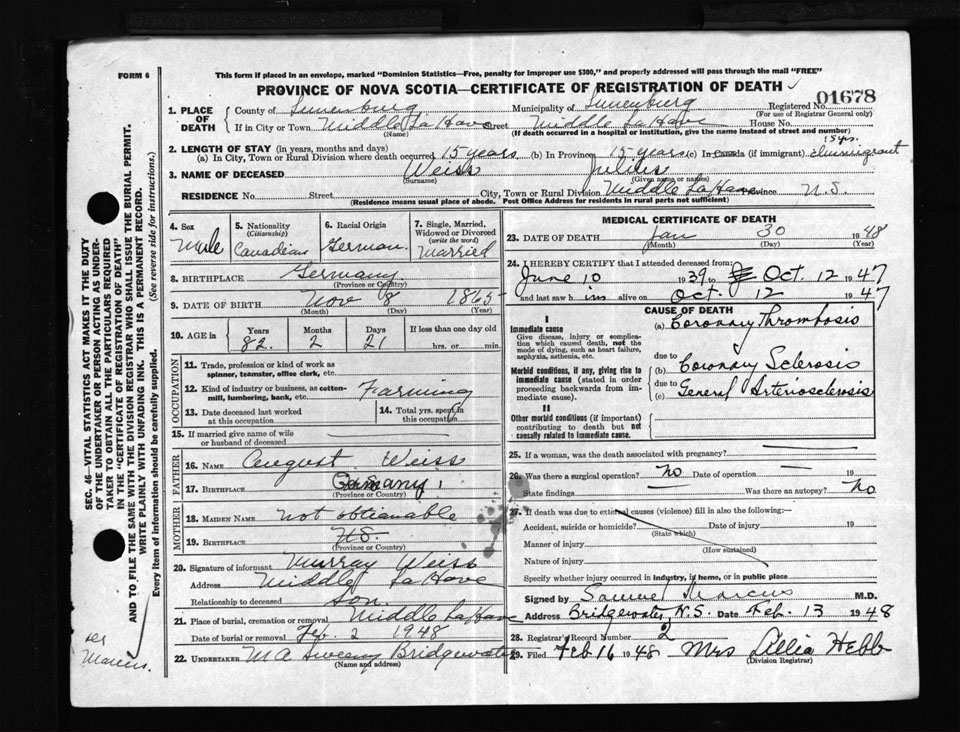 FORM 6
This form if placed in an envelope, marked "Dominion Statistics—Free, penalty for improper use $300," and properly addressed will pass through the mail "FREE"
PROVINCE OF NOVA SCOTIA—CERTIFICATE OF REGISTRATION OF DEATH
01678
1. PLACE OF DEATH { County of Lunenburg Municipality of Lunenburg Registered No.
(For use of Registrar General only)
If in City or Town Middle LaHave Street Middle LaHave House No.
(Name) (If death occurred in a hospital or institution, give the name instead of street and number)
2. LENGTH OF STAY (in years, months and days) 15 yrs.
(a) In City, Town or Rural Division where death occurred 15 years (b) In Province 15 years (c) In Canada (if immigrant)
3. NAME OF DECEASED Weiss Julius
(Surname) (Given name or names)
RESIDENCE No. Street City, Town or Rural Division Middle LaHave Province N.S.
(Residence means usual place of abode, Post Office Address for residents in rural parts not sufficient)
4. Sex Male
5. Nationality (Citizenship) Canadian
6. Racial Origin German
7. Single, Married, Widowed or Divorced (write the word) Married
8. BIRTHPLACE Germany
(Province or Country)
9. DATE OF BIRTH Nov 8 1865
(Month) (Day) (Year)
10. AGE in { Years Months Days If less than one day old
82 2 21 hrs. or min.
OCCUPATION
11. Trade, profession or kind of work as spinner, teamster, office clerk, etc.
12. Kind of industry or business, as cotton-mill, lumbering, bank, etc. Farming
13. Date deceased last worked at this occupation
14. Total yrs. spent in this occupation
15. If married give name of wife or husband of deceased
FATHER
16. NAME August Weiss
17. BIRTHPLACE Germany
(Province or Country)
MOTHER
18. MAIDEN NAME not obtianable
19. BIRTHPLACE N.S.
(Province or Country)
20. Signature of informant Murray Weiss
Address Middle LaHave
Relationship to deceased Son
21. Place of burial, cremation or removal Middle LaHave
Date of burial or removal Feb. 2 1948
22. UNDERTAKER M A Sweeny Bridgewater
(Name and address)
MEDICAL CERTIFICATE OF DEATH
23. DATE OF DEATH Jan 30 1948
(Month) (Day) (Year)
24. I HEREBY CERTIFY that I attended deceased from:
June 10 1939 to Oct. 12 1947
and last saw h im alive on Oct. 12 1947
CAUSE OF DEATH
I
Immediate cause
Give disease, injury or complication which caused death, not the mode of dying, such as heart failure, asphyxia, asthenia, etc.
(a) Coronary Thrombosis
due to
Morbid conditions, if any, giving rise to immediate cause (stated in order proceeding backwards from immediate cause).
(b) Coronary Sclerosis
due to
(c) General Arteriosclerosis
II
Other morbid conditions (if important) contributing to death but not causally related to immediate cause.
25. If a woman, was the death associated with pregnancy?
26. Was there a surgical operation? No Date of operation 19
State findings Was there an autopsy? No
27. If death was due to external causes (violence) fill in also the following:—
Accident, suicide or homicide? Date of injury 19
(State which)
Manner of injury
(How sustained)
Nature of injury
Specify whether injury occurred in industry, in home, or in public place
Signed by Samuel Marcus M.D.
Address Bridgewater, N.S. Date Feb. 13 1948
28. Registrar's Record Number 2
29. Filed Feb 16 1948 Mrs Hebb
(Division Registrar)
SEC. 46—VITAL STATISTICS ACT MAKES IT THE DUTY
OF THE UNDERTAKER OR PERSON ACTING AS UNDER-
TAKER TO OBTAIN ALL THE PARTICULARS REQUIRED
IN THE "CERTIFICATE OF REGISTRATION OF DEATH"
AND TO FILE THE SAME WITH THE DIVISION REGISTRAR WHO SHALL ISSUE THE BURIAL PERMIT.
WRITE PLAINLY WITH UNFADING INK. THIS IS A PERMANENT RECORD.
Every item of information should be carefully supplied. (See reverse side for instructions.)
Marcus.